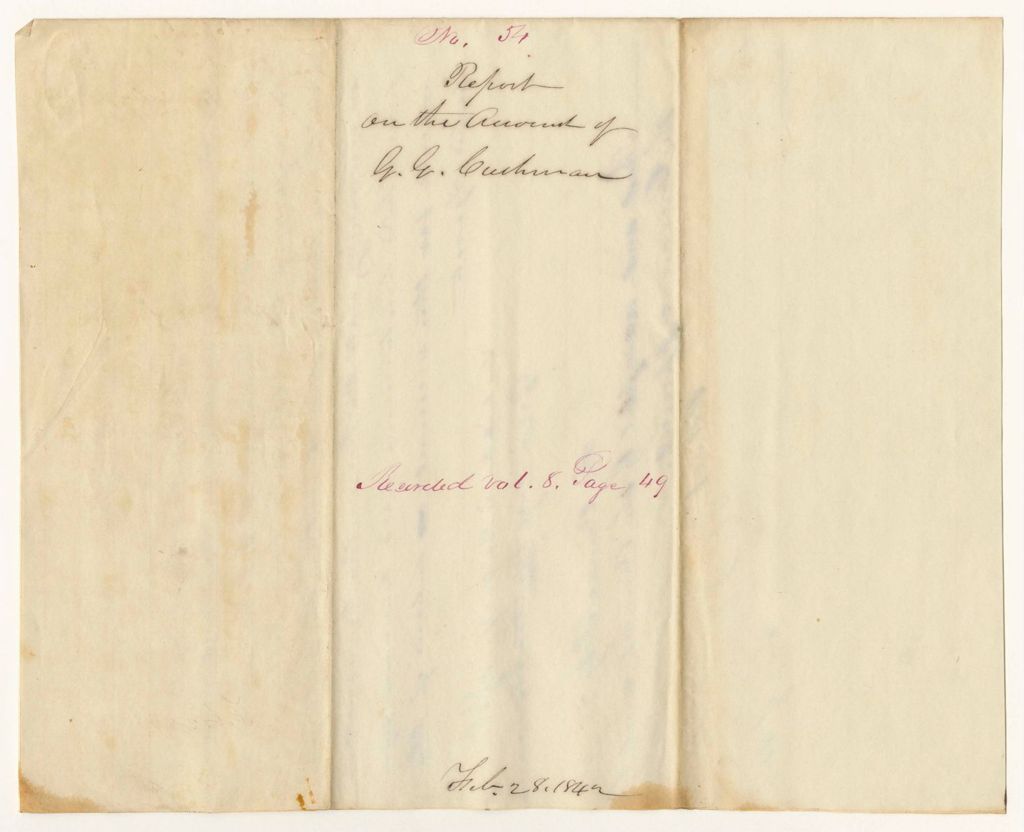 No. 54
Report
on the Account of
G. G. Cushman
Recorded Vol. 8. Page 49
Feb. 28. 1842